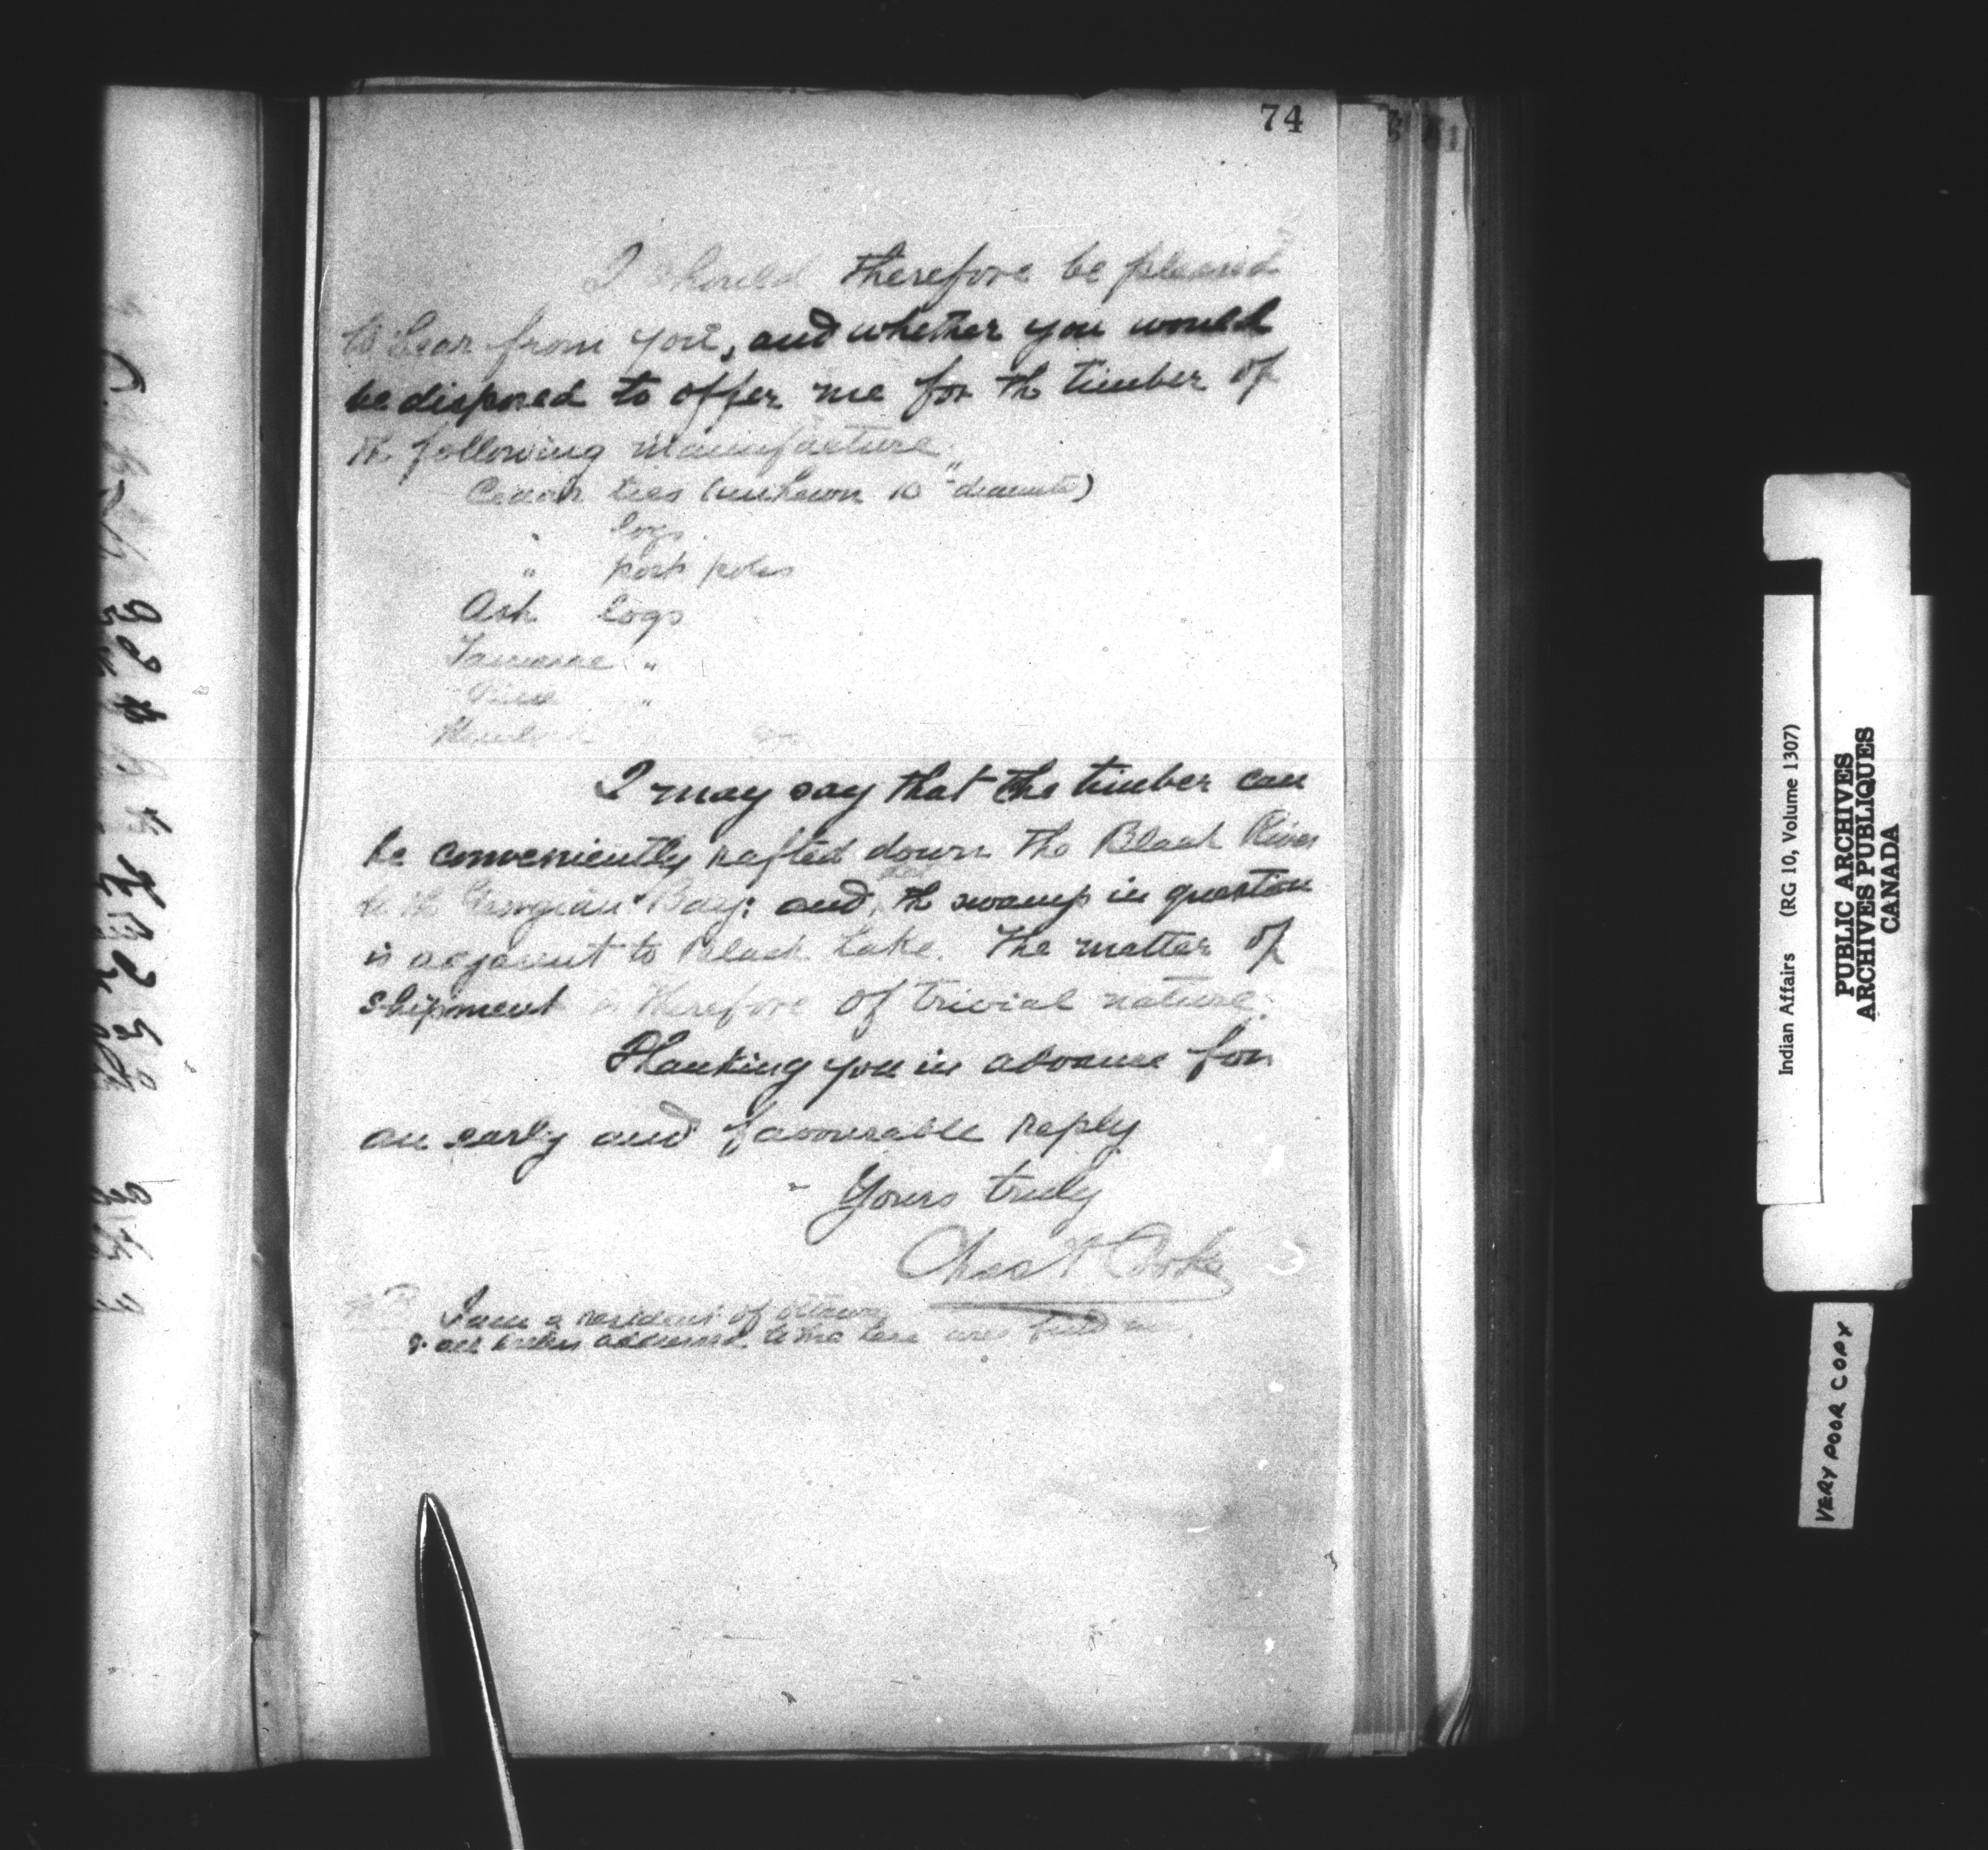 74
I should therefore be pleased
to hear from you, and whether you would
be disposed to offer me for the timber of
the following manufacture
Cedar ties (unhewn 10"
" logs
" post poles
Ash logs
Tamarac "
"
Hemlock
I may say that the timber can
be conveniently rafted down the Black River
to the Georgian Bay: and the swamp in question
is adjacent to Black Lake. The matter of
shipment is therefore of trivial nature.
Thanking you in advance for
an early and favourable reply
Yours truly
Chas A Cooke
NB I am a resident of Ottawa
& all letters addressed to me here will find me.
Indian Affairs (RG 10, Volume 1307)
PUBLIC ARCHIVES
ARCHIVES PUBLIQUES
CANADA
VERY POOR COPY